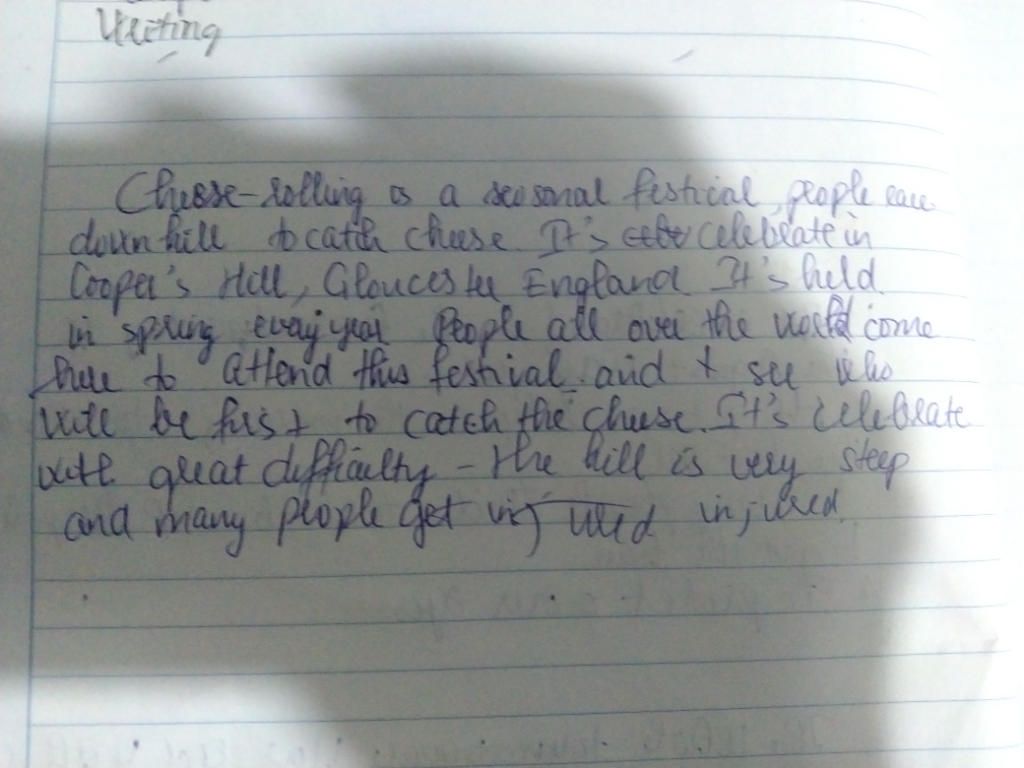 Writing
Cheese-rolling is a seasonal festical, people race
down hill to catch cheese. It's celebrate in
Cooper's Hill, Gloucester England. It's held
in spring every year. People all over the world come
here to attend this festival and t see who
will be first to catch the cheese. It's celebrate
with great difficulty - the hill is very steep
and many people get injured injured.